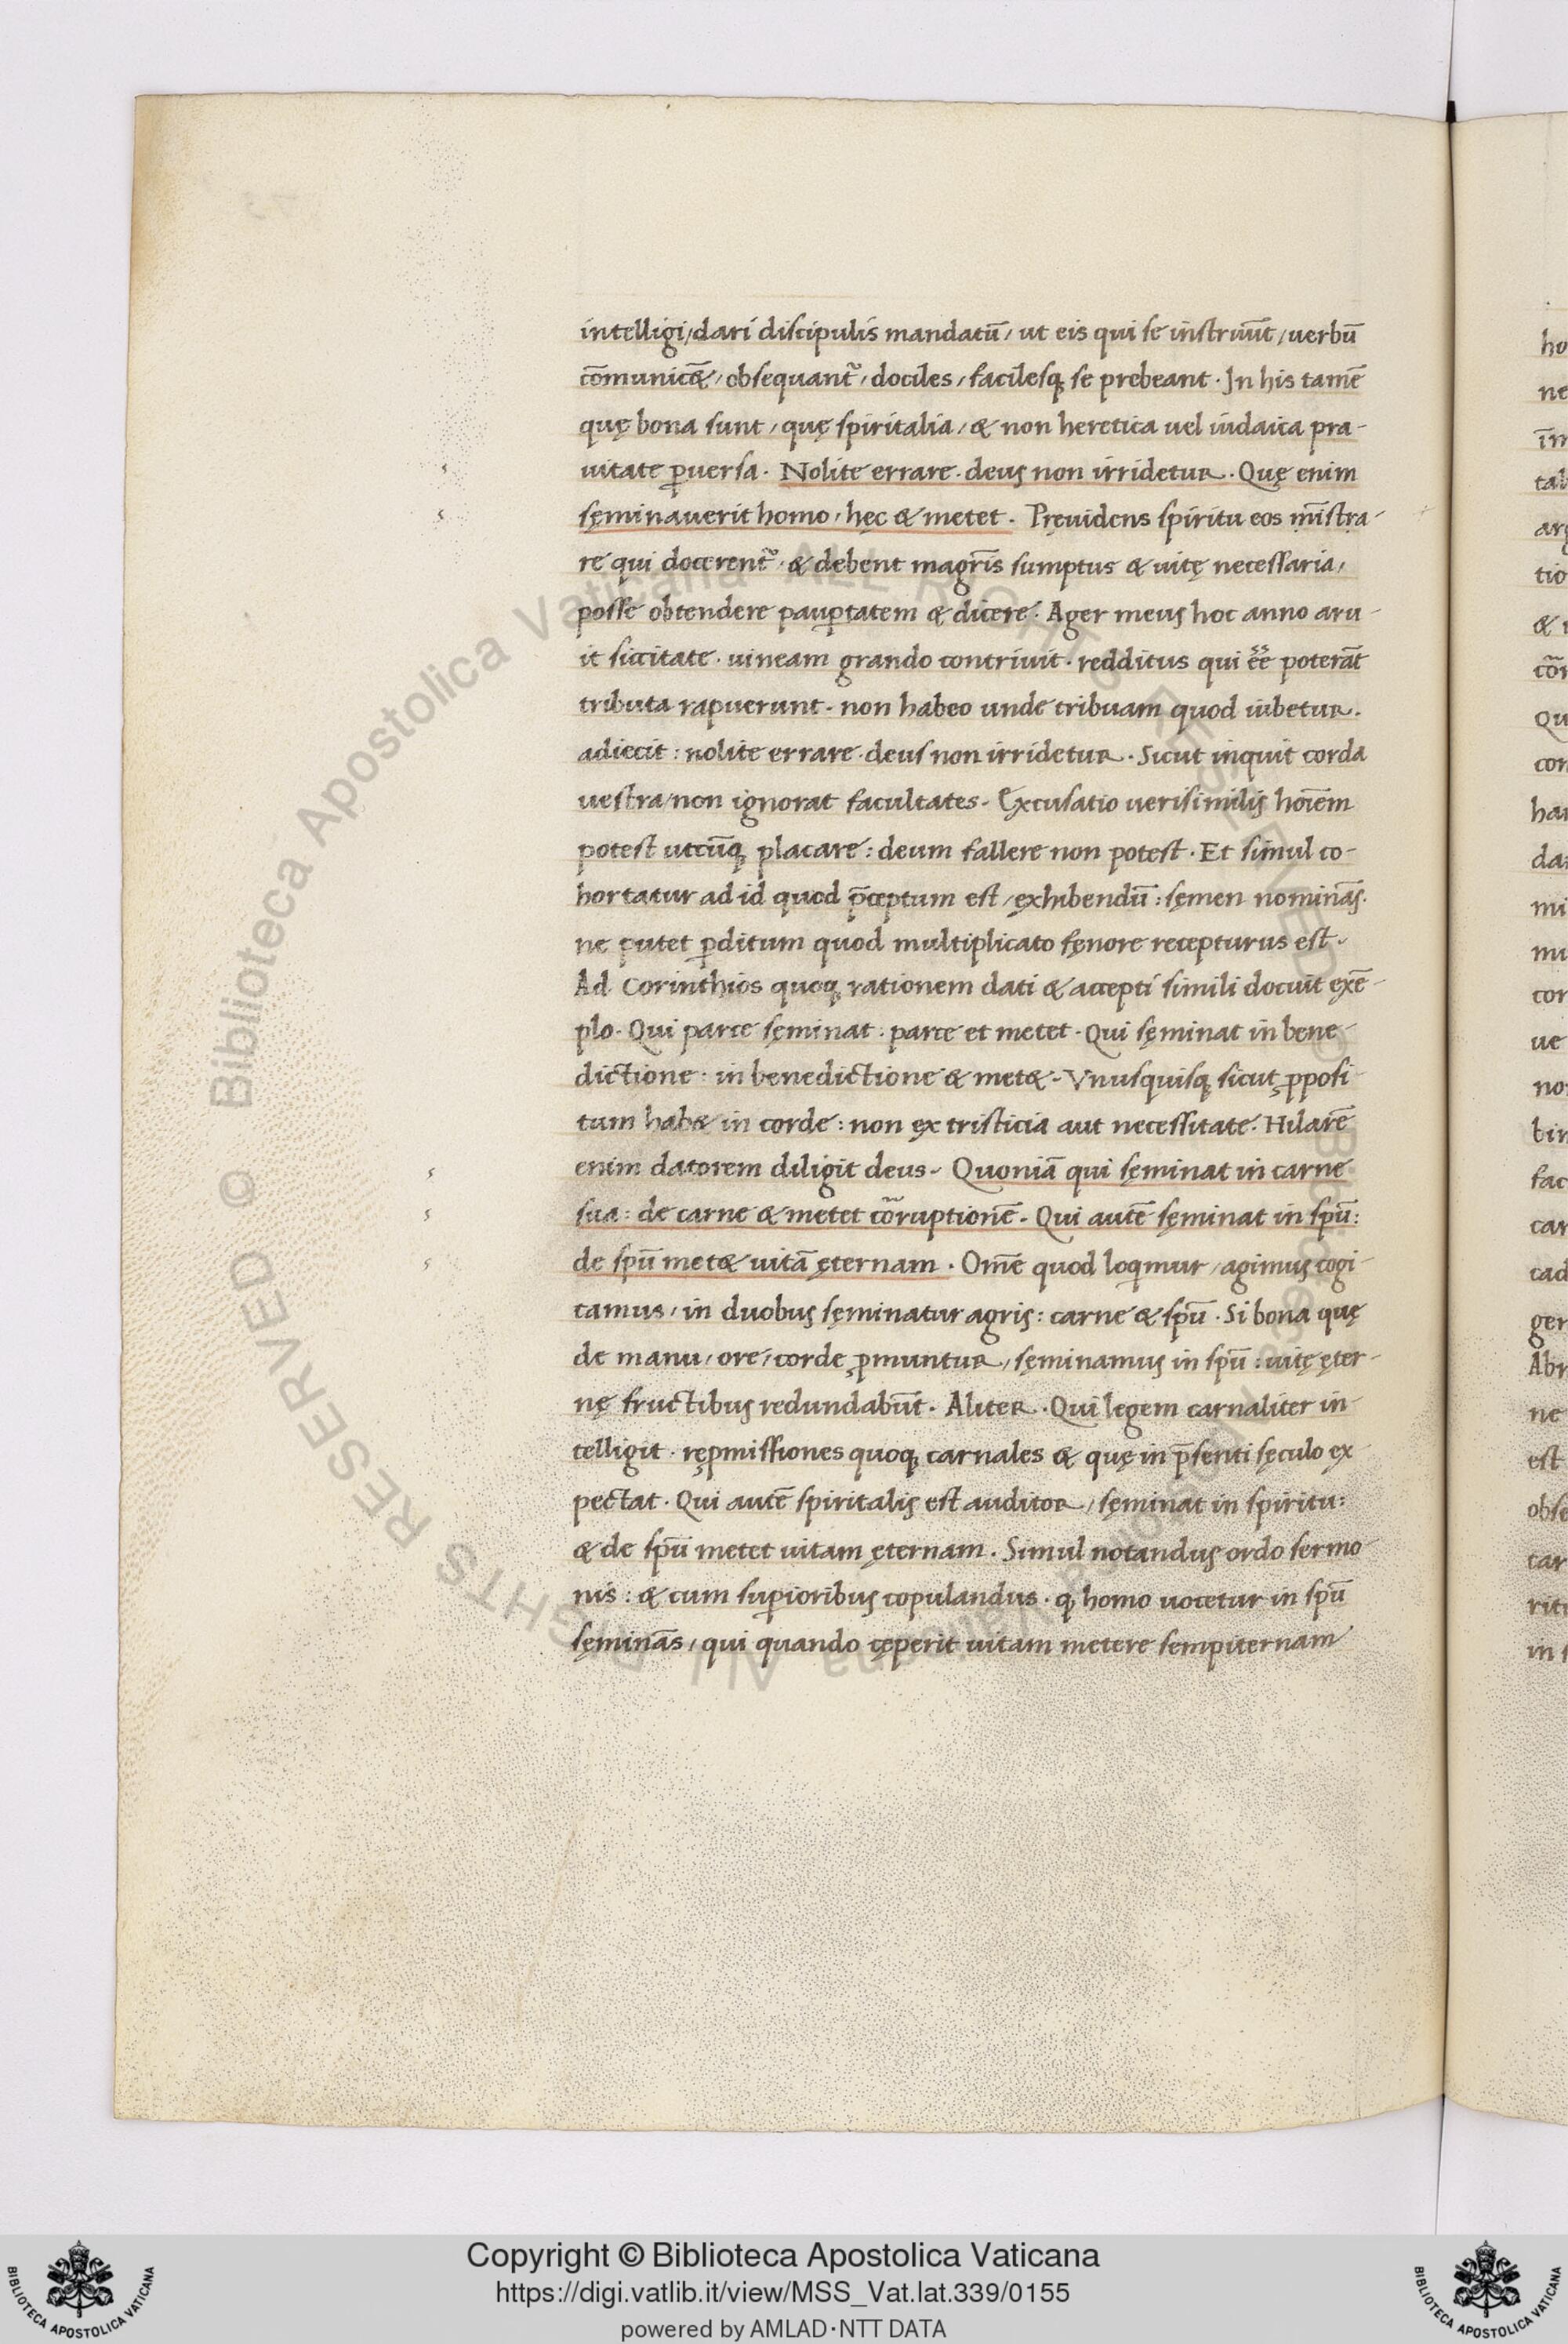 intelligi/dari discipulis mandatū/ ut eis qui se instruūt/uerbū
cōmunicēt/obsequant᷑/dociles/facilesq; se prebeant· In his tamē
quę bona sunt/quę spiritalia/& non heretica uel iudaica pra-
uitate ꝑuersa· Nolite errare· deus non irridetur· Quę enim
sęminauerit homo/hęc & metet· Pręuidens spiritu eos mīstra-
re qui docerent᷑· & debent magr̄is sumptus & uitę necessaria/
posse obtendere pauꝑtatem & dicere· Ager meus hoc anno aru-
it siccitate· uineam grando contriuit· redditus qui ēē poterāt
tributa rapuerunt· non habeo unde tribuam quod iubetur·
adiecit: nolite errare· deus non irridetur· Sicut inquit corda
uestra/non ignorat facultates· Excusatio uerisimilis hoīem
potest utcūq; placare: deum fallere non potest· Et simul co-
hortatur ad id quod p̄ceptum est/exhibendū: sęmen nominās·
ne putet ꝑditum quod multiplicato fęnore recepturus est·
Ad Corinthios quoq; rationem dati & accepti simili docuit exē-
plo· Qui parce sęminat: parce et metet· Qui sęminat in bene-
dictione: in benedictione & met&· Vnusquisq; sicut ꝓposi-
tum hab& in corde: non ex tristicia aut necessitate· Hilarē
enim datorem diligit deus· Quoniā qui sęminat in carne
sua: de carne & metet cōrruptionē· Qui autē sęminat in spū:
de spū met& uitā ęternam· Omē quod loqimur/agimus cogi-
tamus/in duobus sęminatur agris: carne & spū· Si bona quę
de manu/ore/corde ꝓmuntur/sęminamus in spū: uitę ęter-
nę fructibus redundabūt· Aliter· Qui legem carnaliter in-
telligit· reꝓmissiones quoq; carnales & quę in p̄senti sęculo ex-
pectat· Qui autē spiritalis est auditor/sęminat in spiritu:
& de spū metet uitam ęternam· Simul notandus ordo sermo-
nis: & cum suꝑioribus copulandus· q; homo uocetur in spū
sęminās/qui quando cęperit uitam metere sempiternam
ho
ne
tal
tio
&
Qu
con
mi
mu
cor
ue
no
bin
fac
car
cad
ger
Abr
ne
est
obse
car
ritu
in s
© Biblioteca Apostolica Vaticana ALL RIGHTS RESERVED
© Biblioteca Apostolica Vaticana ALL RIGHTS RESERVED
Copyright © Biblioteca Apostolica Vaticana
https://digi.vatlib.it/view/MSS_Vat.lat.339/0155
powered by AMLAD·NTT DATA
BIBLIOTECA APOSTOLICA VATICANA
BIBLIOTECA APOSTOLICA VATICANA